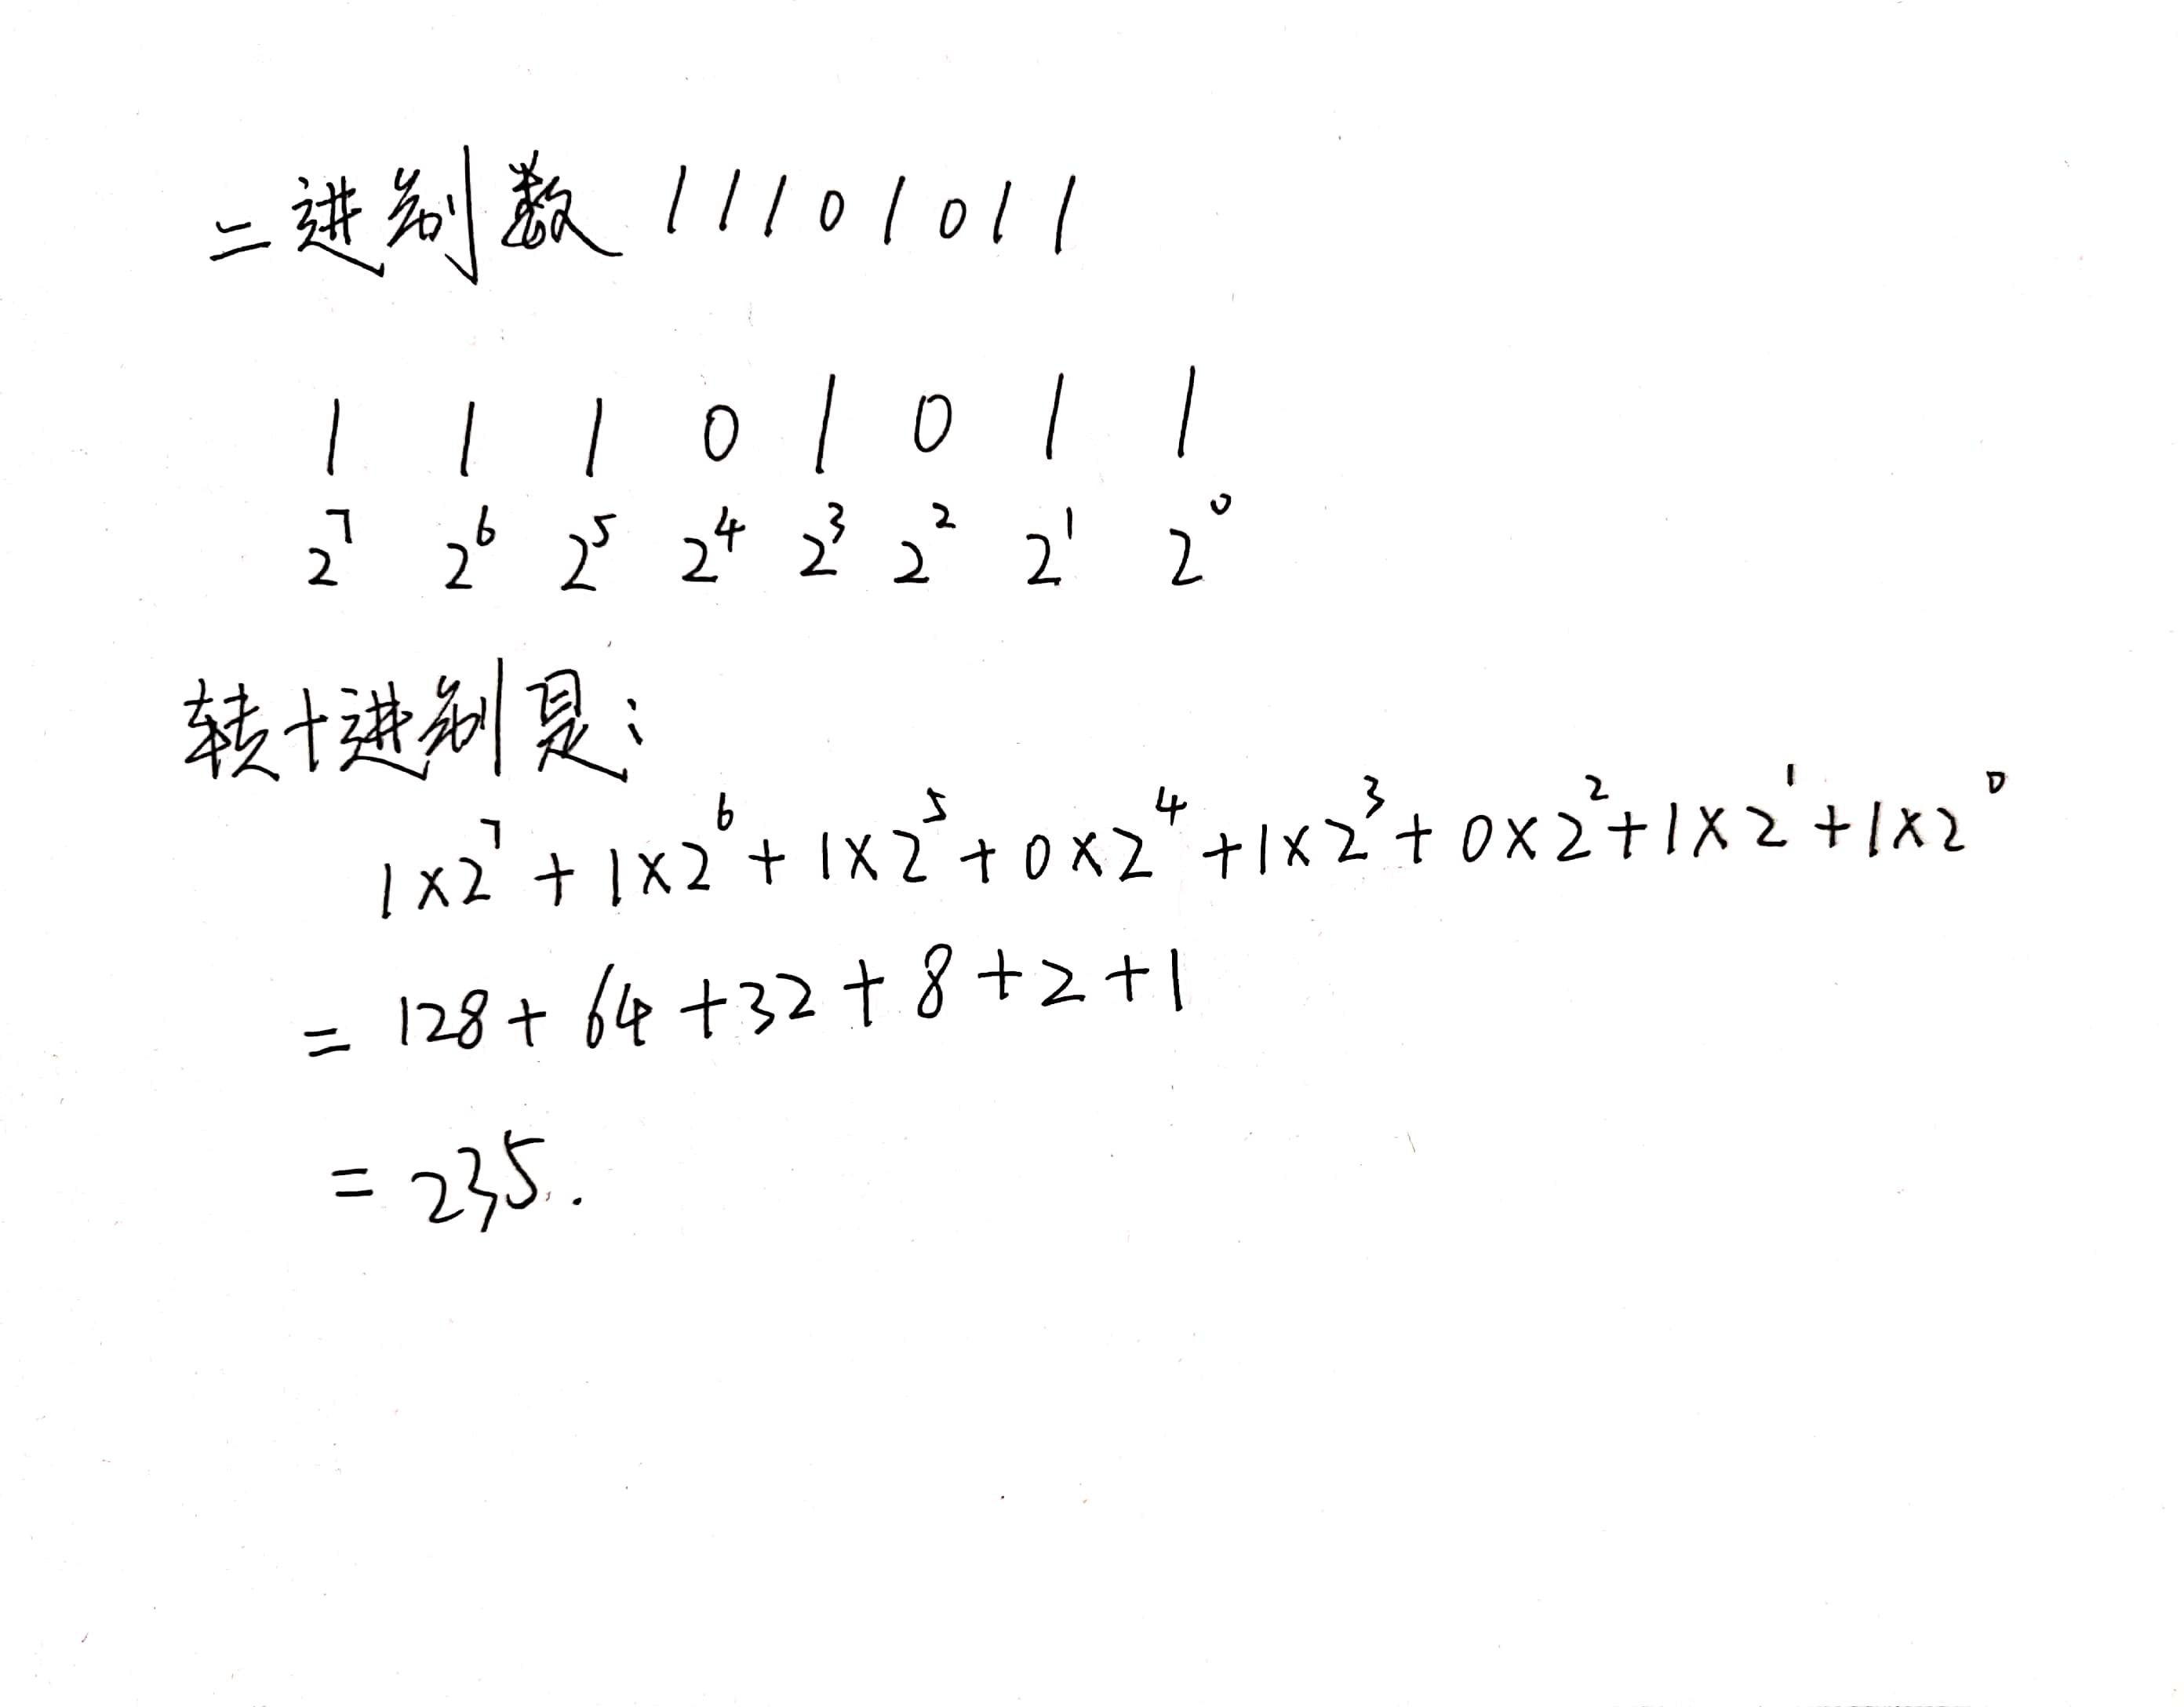 二进制数 11101011
1 1 1 0 1 0 1 1
2⁷ 2⁶ 2⁵ 2⁴ 2³ 2² 2¹ 2⁰
转十进制是:
1×2⁷ + 1×2⁶ + 1×2⁵ + 0×2⁴ + 1×2³ + 0×2² + 1×2¹ + 1×2⁰
= 128 + 64 + 32 + 8 + 2 + 1
= 235.